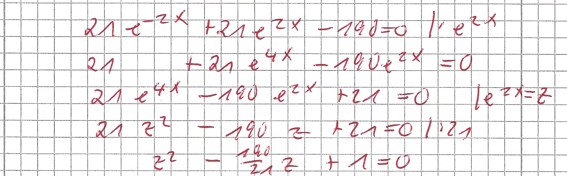 21 e^{-2x} + 21 e^{2x} - 190 = 0 |· e^{2x}
21 + 21 e^{4x} - 190 e^{2x} = 0
21 e^{4x} - 190 e^{2x} + 21 = 0 | e^{2x} = z
21 z² - 190 z + 21 = 0 |: 21
z² - \frac{190}{21} z + 1 = 0